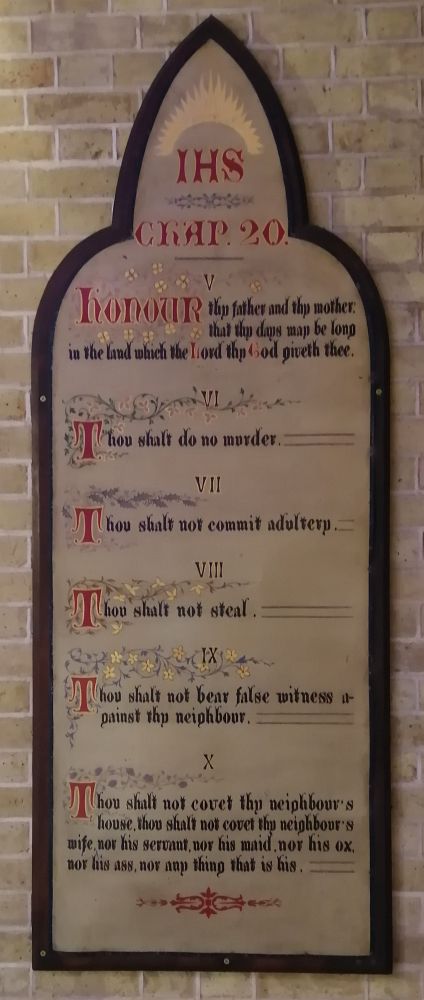 IHS
CHAP. 20.
V
Honour thy father and thy mother:
that thy days may be long
in the land which the Lord thy God giveth thee.
VI
Thou shalt do no murder.
VII
Thou shalt not commit adultery.
VIII
Thou shalt not steal.
IX
Thou shalt not bear false witness a-
gainst thy neighbour.
X
Thou shalt not covet thy neighbour's
house, thou shalt not covet thy neighbour's
wife, nor his servant, nor his maid, nor his ox,
nor his ass, nor any thing that is his.